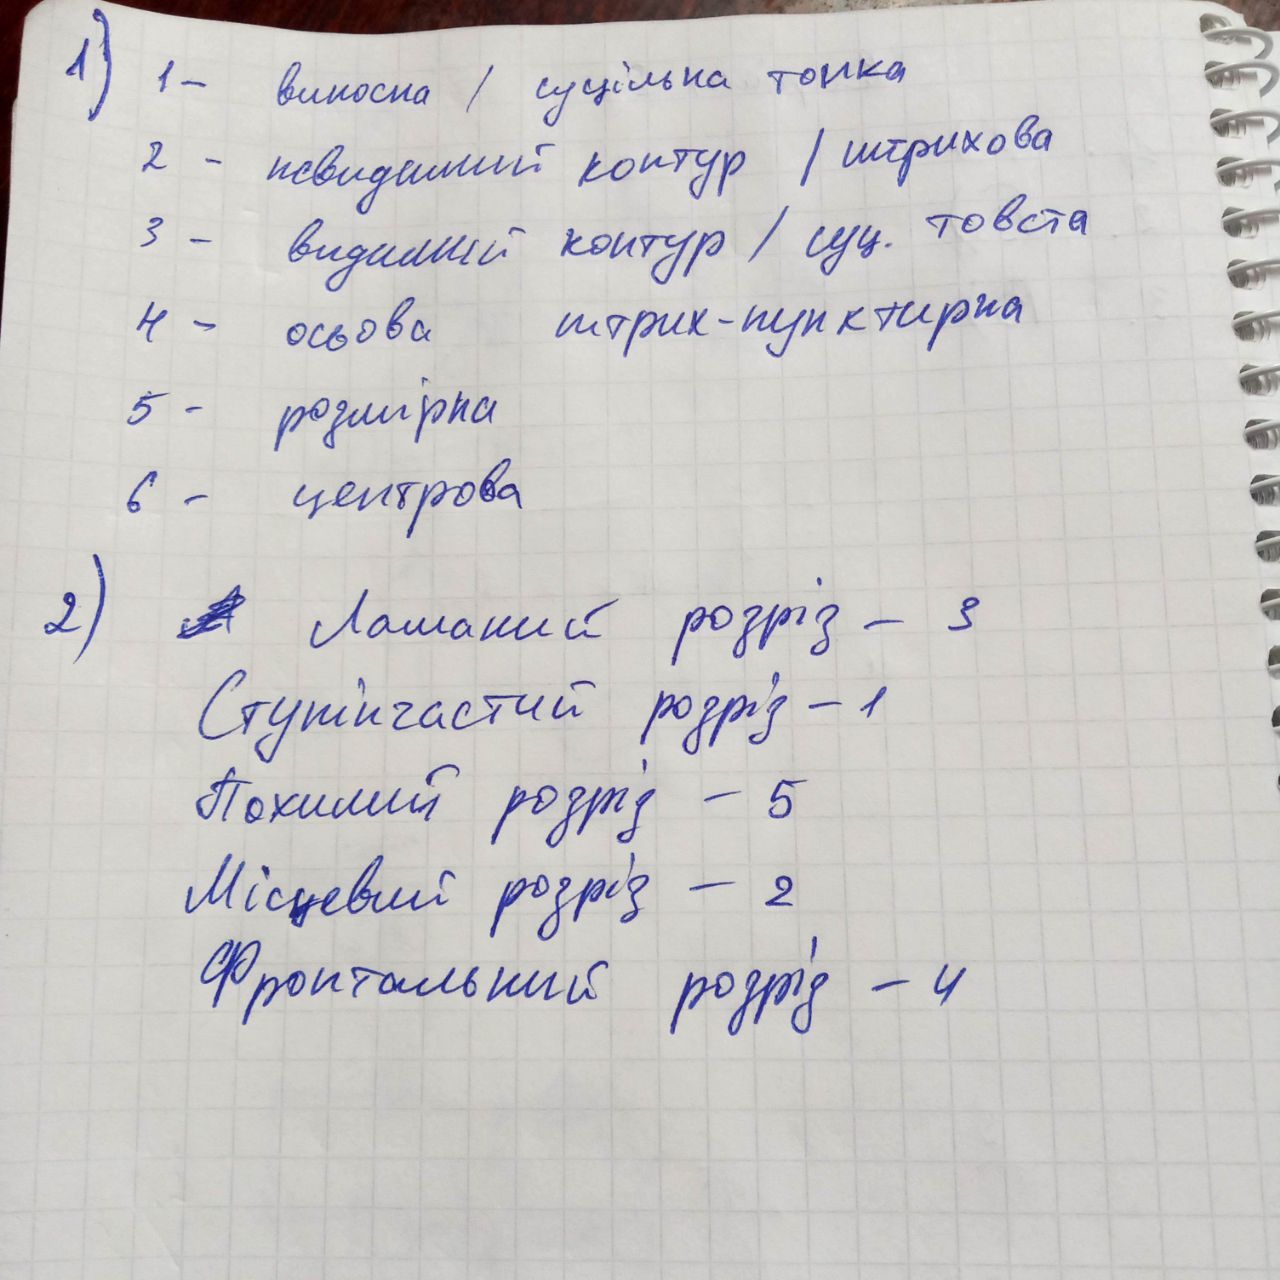 1) 1 - виносна / суцільна тонка
2 - невидимий контур / штрихова
3 - видимий контур / суц. товста
4 - осьова штрих-пунктирна
5 - розмірна
6 - центрова
2) Ламаний розріз - 3
Ступінчастий розріз - 1
Похилий розріз - 5
Місцевий розріз - 2
Фронтальний розріз - 4